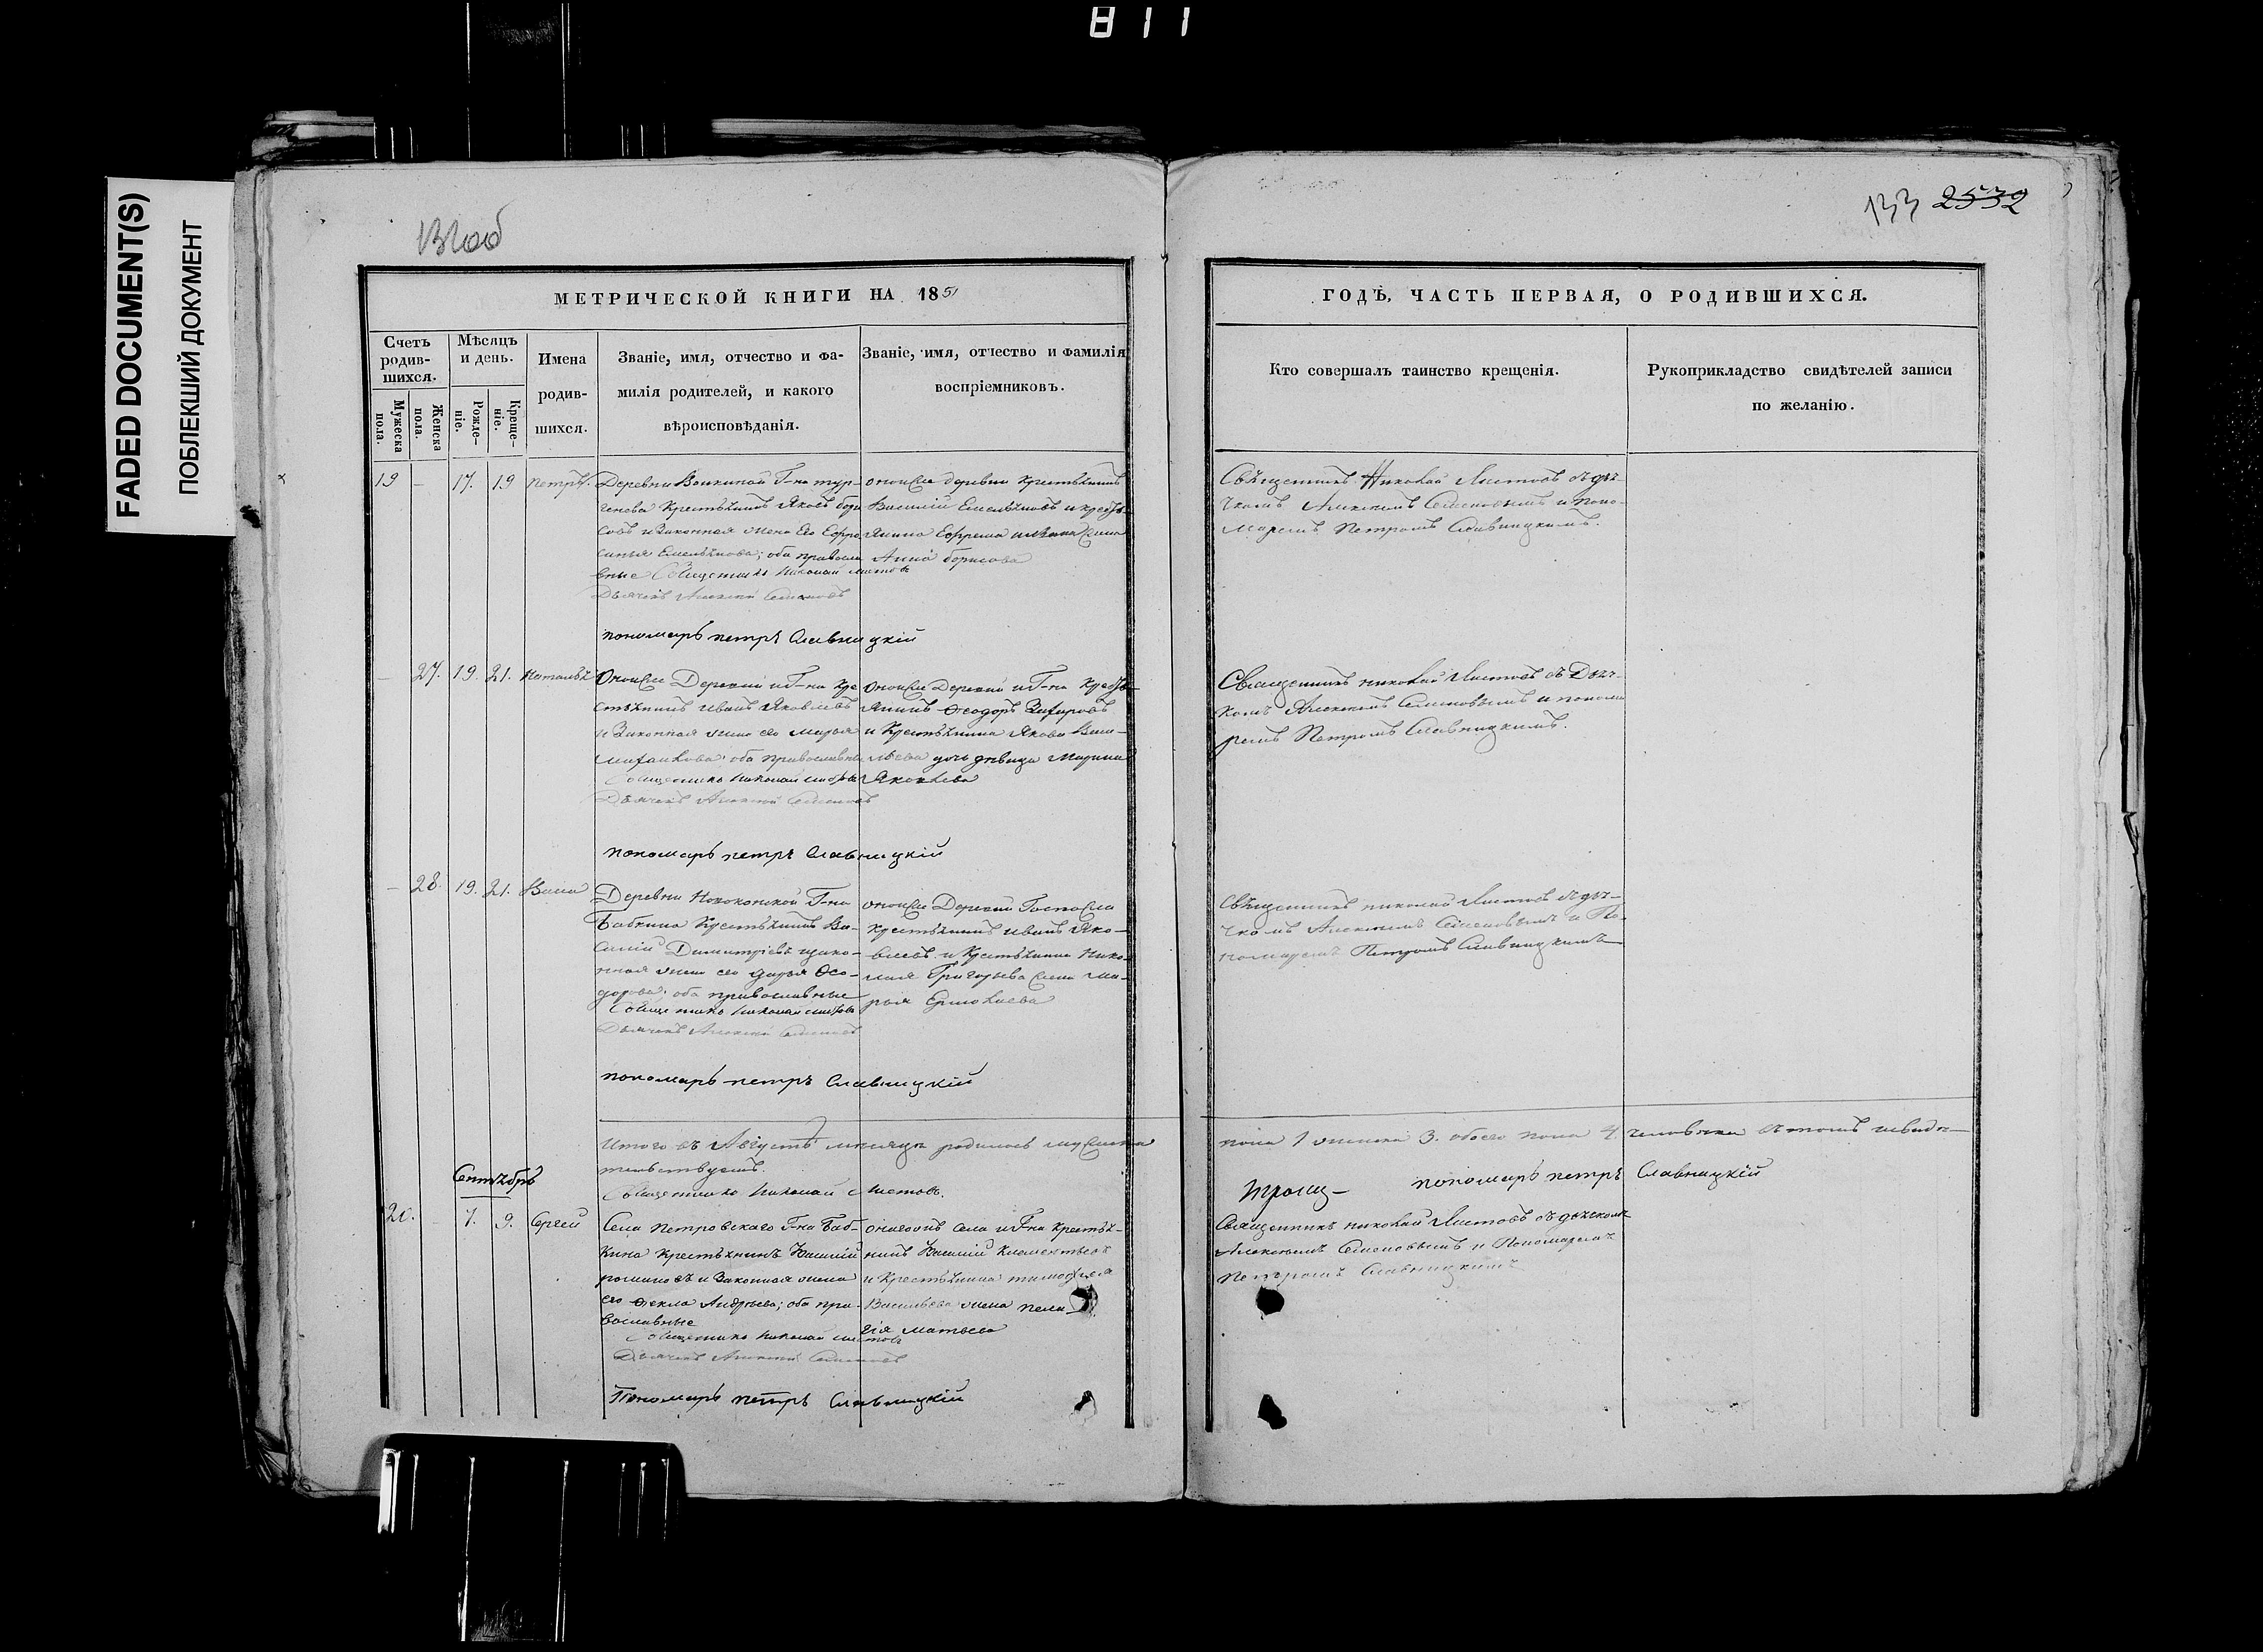 811
FADED DOCUMENT(S)
ПОБЛЕКШИЙ ДОКУМЕНТ
132об
133 2532
МЕТРИЧЕСКОЙ КНИГИ НА 1851
ГОДЪ, ЧАСТЬ ПЕРВАЯ, О РОДИВШИХСЯ.
Счетъ родив-шихся.
Мужеска пола.
Женска пола.
Мѣсяцъ и день.
Рожде-ніе.
Креще-ніе.
Имена родив-шихся.
Званіе, имя, отчество и фа-
милія родителей, и какого
вѣроисповѣданія.
Званіе, имя, отчество и фамилія
воспріемниковъ.
Кто совершалъ таинство крещенія.
Рукоприкладство свидѣтелей записи
по желанію.
19 – 17. 19 Петръ.
Деревни Г-на Тур-
генева Крестьянинъ Яковъ Бори
совъ и Законная жена Его Ефро
синья Емельянова; оба правосла
вные Священникъ Николай Листовъ
Дьячекъ Алексей Семеновъ
пономарь петръ Славницкій
оной же деревни Крестьянинъ
Василій Емельяновъ и крестья
Анна борисова
Священникъ Николай Листовъ съ дья-
чкомъ Алексеемъ Семеновымъ и поно-
маремъ Петромъ Славницкимъ.
– 27. 19. 21. Наталья
Оной же Деревни и Г-на Кре
стьянинъ Иванъ Яковлевъ
и Законная жена его Марья
оба православные
Священникъ Николай Листовъ
Дьячекъ Алексей Семеновъ
пономарь петръ Славницкій
оной же Деревни и Г-на Крестья-
нинъ Ѳеодоръ Захаровъ
и Крестьянина Якова Васи-
льева дочь девица Марина
Яковлева
Священникъ николай Листовъ съ Дьяч-
комъ Алексеемъ Семеновымъ и понома
ремъ Петромъ Славницкимъ.
– 28. 19. 21.
Деревни Г-на
Бабкина Крестьянинъ Ва-
силій Димитріевъ и зако-
нная жена его Дарья Ѳео-
дорова; оба православные
Священникъ Николай Листовъ
Дьячекъ Алексей Семеновъ
пономарь петръ Славницкій
оной же Деревни
крестьянинъ Иванъ Яко-
влевъ и Крестьянина Нико-
лая Григорьева жена Ма-
рья Ермолаева
Священникъ николай Листовъ съ дья-
чкомъ Алексеемъ Семеновымъ и По-
номаремъ Петромъ Славницкимъ
Итого въ Августѣ месяце родилось мужеска
пола 1 женска 3. обоего пола 4. человека в томъ свиде-
тельствуемъ.
Священникъ Николай Листовъ.
пономарь петръ Славницкій
Сентябрь
20. – 7. 9. Сергей
Села Петровскаго Г-на Баб-
кина Крестьянинъ Василій
и Законная жена
его Ѳекла Андреева; оба пра-
вославные
Священникъ Николай Листовъ
Дьячекъ Алексей Семеновъ
Пономарь петръ Славницкій
онагожъ Села и Г-на Крестья-
нинъ Василій Климентьевъ
и Крестьянина тимофея
Васильева жена Пела-
гія Матвеева
Священникъ николай Листовъ съ дьячкомъ
Алексеемъ Семеновымъ и Пономаремъ
Петромъ Славницкимъ